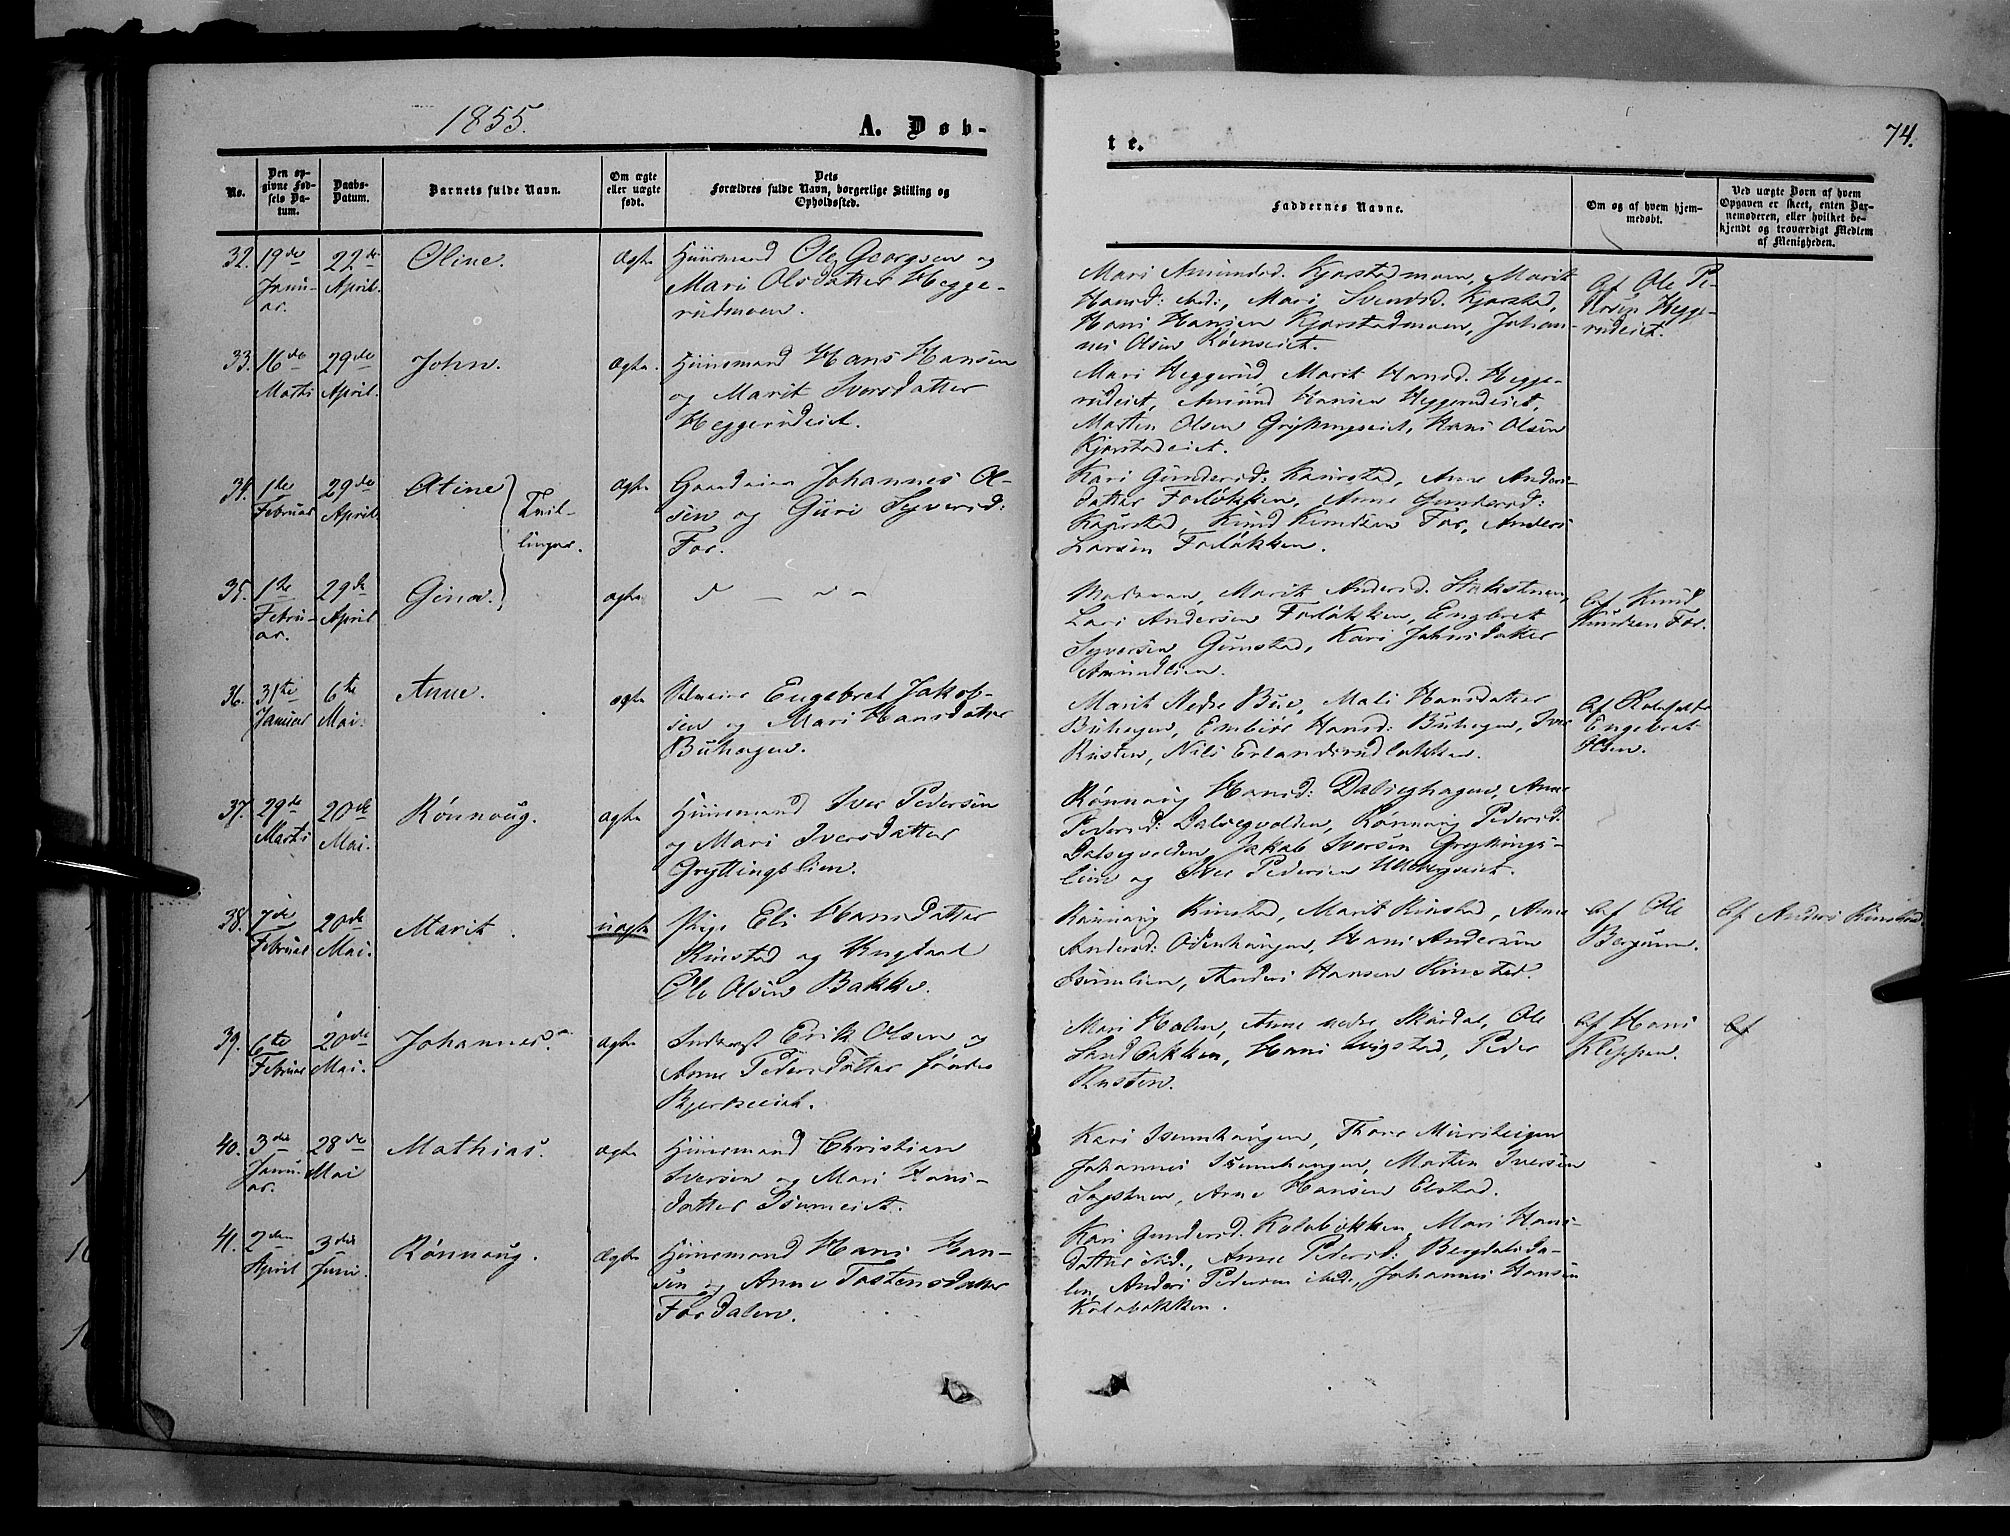 1855.
A. Døb-
te.
74.
No.
Den op-
givne Fød-
sels Da-
tum.
Daabs-
Datum.
Barnets fulde Navn.
Om ægte
eller uægte
født.
Dets
Forældres fulde Navn, borgerlige Stilling og
Opholdssted.
Faddernes Navne.
Om og af hvem hjem-
medøbt.
Ved uægte Born af hvem
Opgaven er skeet, enten Bar-
nemoderen, eller hvilket be-
kjendt og troværdigt Medlem
af Menigheden.
32.
19de
Janu-
ar.
22de
April.
Oline.
ægte
Huusmand Ole Georgsen og
Mari Olsdatter Hegge-
rudmoen.
Mari Amundsd. Kjorstadmoen, Marit
Hansd: ibid:, Mari Svendsd. Kjorstad,
Hans Hansen Kjorstadmoen, Johan-
nes Olsen
Af Ole Pe-
Hegge-
rudeiet.
33.
16de
Marts
29de
April.
John.
ægte.
Huusmand Hans Hansen
og Marit Iversdatter
Heggerudeiet.
Mari Heggerud, Marit Hansd. Hegge-
rudeiet, Amund Hansen Heggerudeiet,
Morten Olsen Gryttingseiet, Hans Olsen
Kjorstadeiet.
34.
1ste
Februar
29de
April
Oline
Tvil-
linger.
ægte
Gaardeier Johannes Ol-
sen og Guri Syversd:
For.
Kari Gundersd: Kaurstad, Anne Anders-
datter Forløkken, Anne Gundersd:
Kaurstad, Knud Knudsen For, Anders
Larsen Forløkken.
35.
1ste
Febru-
ar.
29de
April
Gina.
ægte
〃 — 〃 —
Moderen, Marit Andersd.
Lars Andersen Forløkken, Engebret
Syversen Gunstad, Kari Johnsdatter
Amundlien.
Af Knud
Knudsen For.
36.
31te
Januar
6te
Mai.
Anne.
ægte
Engebret Jakob-
sen og Mari Hansdatter
Buhagen.
Marit Nedre Bue, Mali Hansdatter
Buhagen, Embiør Hansd: Buhagen, Iver
Rusten, Nils Erlandsrudløkken.
Af
Engebret
Olsen.
37.
29de
Marts
20de
Mai.
Rønnoug.
ægte
Huusmand Iver Pedersen
og Mari Iversdatter
Gryttingslien.
Rønnoug Hansd: Dalseghagen, Anne
Pedersd: Dalsegvolden, Rønnoug Pedersd.
Dalsegvolden, Jakob Iversen Gryttings-
lien og Iver Pedersen
38.
7de
Februar
20de
Mai.
Marit.
uægte
Pige Eli Hansdatter
Rinstad og Ungkarl
Ole Olsen Bakke.
Rønnoug Kinstad, Marit Kinstad, Anne
Andersd: Odenhaugen, Hans Andersen
Isumlien, Anders Hansen Kinstad.
Af Ole
Bergum.
Af Anders Kinstad.
39.
6te
Februar
20de
Mai.
Johannes.
ægte
Inderst Erik Olsen og
Anne Pedersdatter søndre
Bjerkeeiet.
Mari Holen, Anne nedre Skurdal, Ole
Sandbakken, Hans Vigstad, Peder
Rusten.
Af Hans
Kleppen.
Af
40.
3die
Janu-
ar.
28de
Mai
Mathias.
ægte
Huusmand Christian
Iversen og Mari Hans-
datter Isumeiet.
Kari Isumhaugen, Thore Mursteigen
Johannes Isumhaugen, Morten Iversen
Sagstuen, Arne Hansen Elstad.
41.
2den
April
3die
Juni.
Rønnoug.
Ægte
Huusmand Hans Han-
sen og Anne Tostensdatter
Fordalen.
Kari Gundersd. Kolobækken, Mari Hans-
datter ibid., Anne Pedersd: Bergdalsda-
len, Anders Pedersen ibid., Johannes Hansen
Kolobækken.